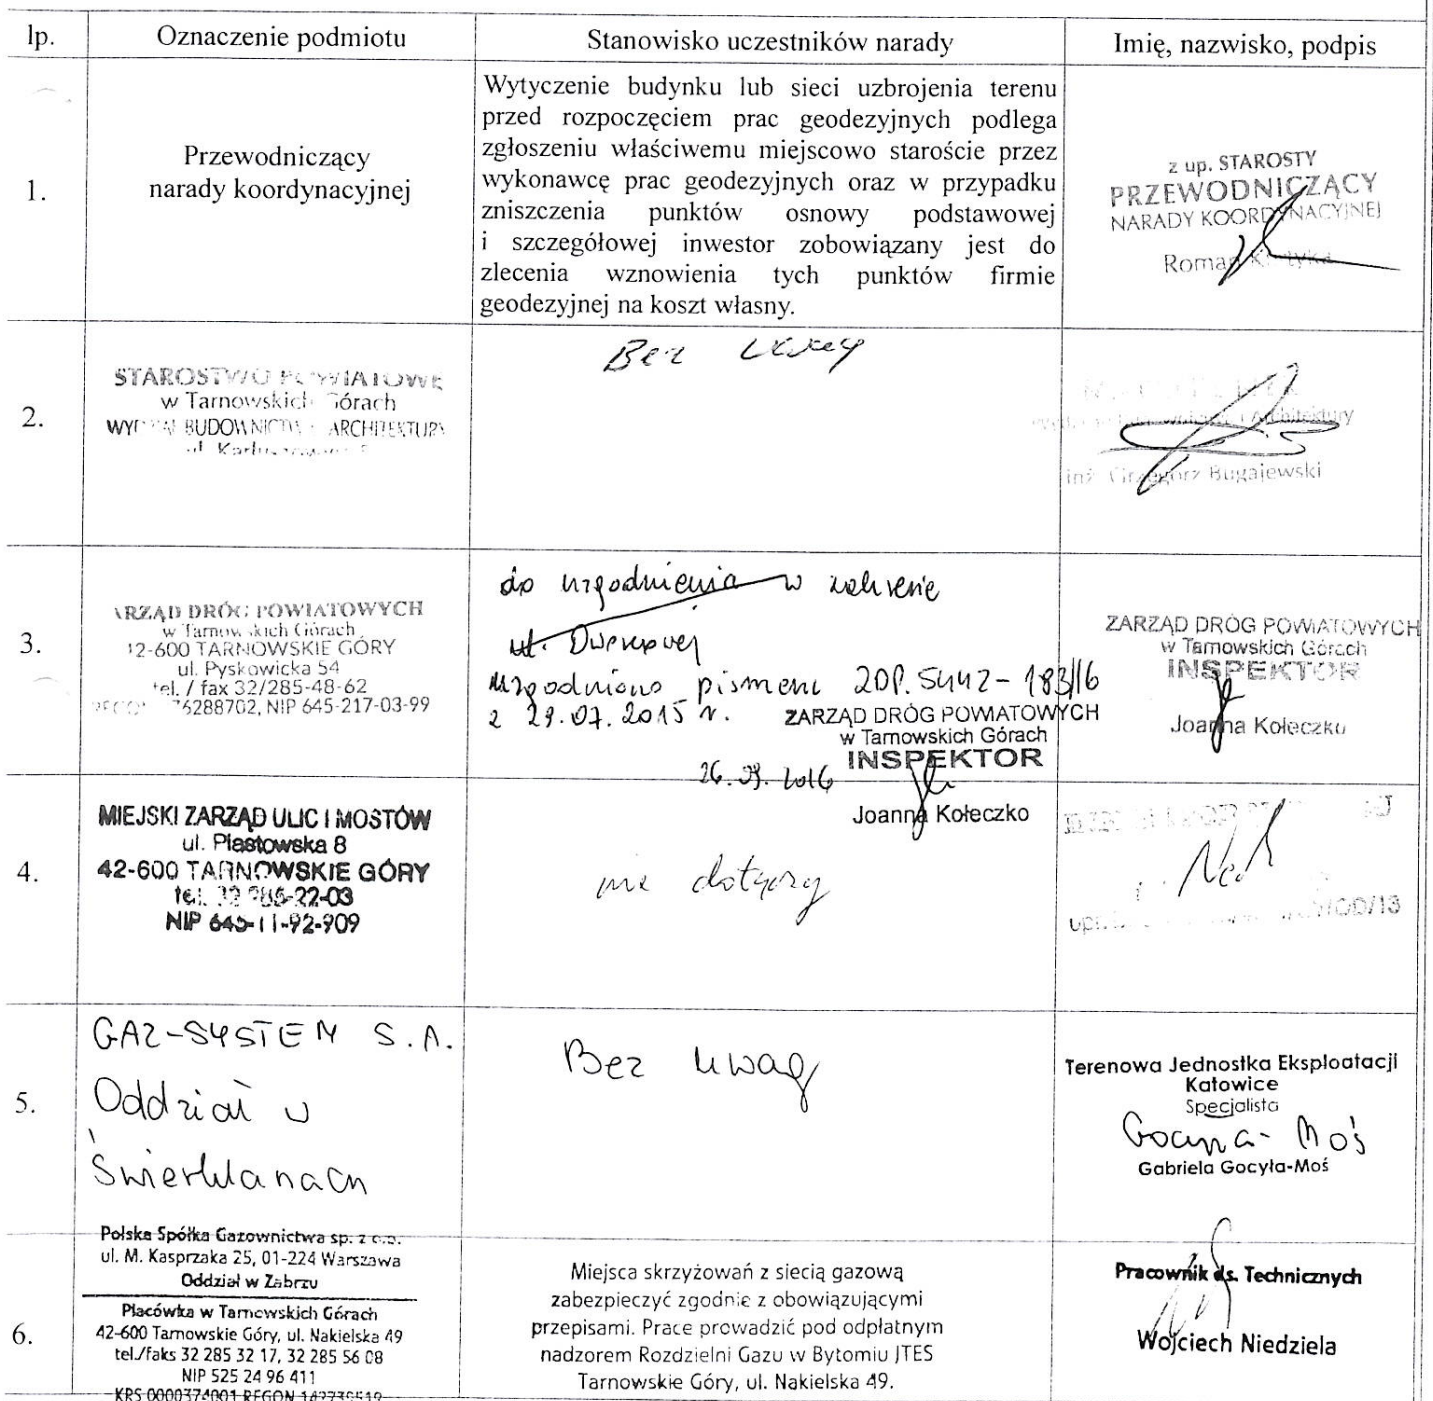 lp. Oznaczenie podmiotu Stanowisko uczestników narady Imię, nazwisko, podpis
1.
Przewodniczący
narady koordynacyjnej
Wytyczenie budynku lub sieci uzbrojenia terenu
przed rozpoczęciem prac geodezyjnych podlega
zgłoszeniu właściwemu miejscowo staroście przez
wykonawcę prac geodezyjnych oraz w przypadku
zniszczenia punktów osnowy podstawowej
i szczegółowej inwestor zobowiązany jest do
zlecenia wznowienia tych punktów firmie
geodezyjnej na koszt własny.
z up. STAROSTY
PRZEWODNICZĄCY
NARADY KOORDYNACYJNEJ
Roman
2.
STAROSTWO POWIATOWE
w Tarnowskich Górach
WYDZIAŁ BUDOWNICTWA I ARCHITEKTURY
ul.
Bez uwag
Architektury
inż. Grzegorz Bugajewski
3.
ZARZĄD DRÓG POWIATOWYCH
w Tarnowskich Górach
42-600 TARNOWSKIE GÓRY
ul. Pyskowicka 54
tel. / fax 32/285-48-62
76288702, NIP 645-217-03-99
do uzgodnienia w zakresie
ul. Dworcowej
uzgodniono pismem ZDP.5442-183/16
z 29.07.2015 r.
ZARZĄD DRÓG POWIATOWYCH
w Tarnowskich Górach
INSPEKTOR
26.09.2016
Joanna Kołeczko
ZARZĄD DRÓG POWIATOWYCH
w Tarnowskich Górach
INSPEKTOR
Joanna Kołeczko
4.
MIEJSKI ZARZĄD ULIC I MOSTÓW
ul. Piastowska 8
42-600 TARNOWSKIE GÓRY
tel. 32 285-22-03
NIP 645-11-92-909
nie dotyczy
5.
GAZ-SYSTEM S.A.
Oddział w
Świerklanach
Bez uwag
Terenowa Jednostka Eksploatacji
Katowice
Specjalista
Gocyła-Moś
Gabriela Gocyła-Moś
6.
Polska Spółka Gazownictwa sp. z o.o.
ul. M. Kasprzaka 25, 01-224 Warszawa
Oddział w Zabrzu
Placówka w Tarnowskich Górach
42-600 Tarnowskie Góry, ul. Nakielska 49
tel./faks 32 285 32 17, 32 285 56 08
NIP 525 24 96 411
KRS 0000374001 REGON
Miejsca skrzyżowań z siecią gazową
zabezpieczyć zgodnie z obowiązującymi
przepisami. Prace prowadzić pod odpłatnym
nadzorem Rozdzielni Gazu w Bytomiu JTES
Tarnowskie Góry, ul. Nakielska 49.
Pracownik ds. Technicznych
Wojciech Niedziela